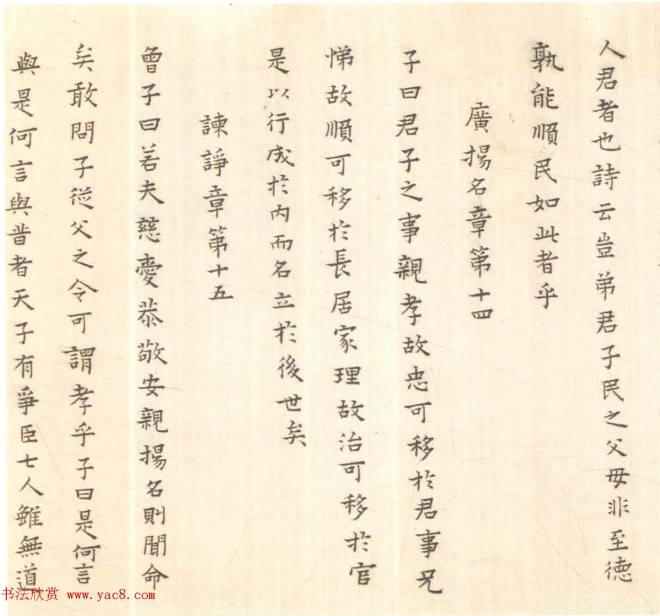 人君者也詩云豈弟君子民之父母非至德
孰能順民如此者乎
廣揚名章第十四
子曰君子之事親孝故忠可移於君事兄
悌故順可移於長居家理故治可移於官
是以行成於內而名立於後世矣
諫諍章第十五
曾子曰若夫慈愛恭敬安親揚名則聞命
矣敢問子從父之令可謂孝乎子曰是何言
與是何言與昔者天子有爭臣七人雖無道
书法欣赏 www.yac8.com